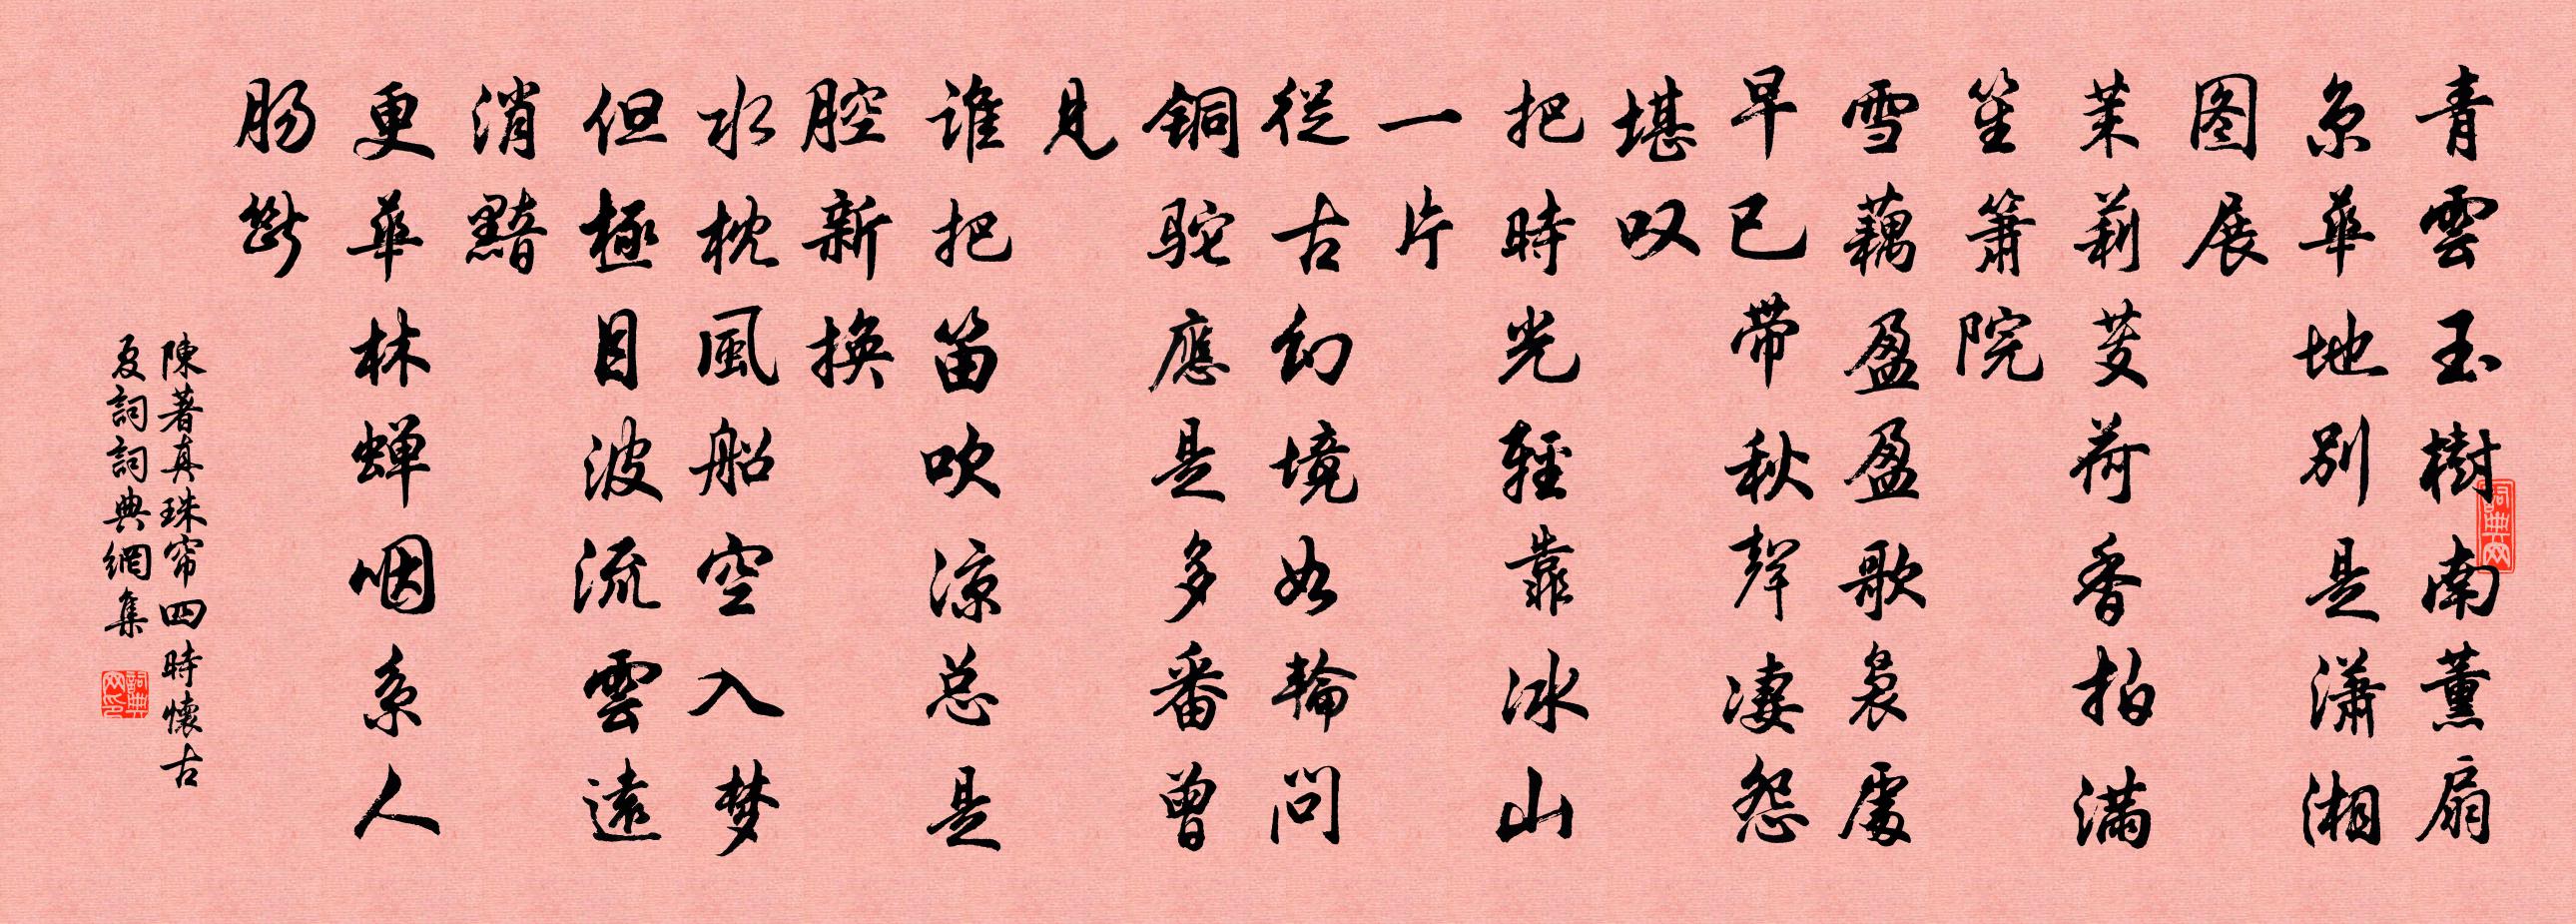 青雲玉樹南薰扇
京華地別是潇湘
图展
茉莉芰荷香拍滿
笙簫院
雪藕盈盈歌袅處
早已帶秋聲淒怨
堪叹
把時光輕靠冰山
一片
從古幻境如輪問
铜駝應是多番曾
見
谁把笛吹凉总是
腔新換
水枕風船空入梦
但極目波流雲遠
消黯
更華林蝉咽系人
肠斷
陳著真珠帘四時懷古
夏詞詞典網集
詞典网
詞典网印